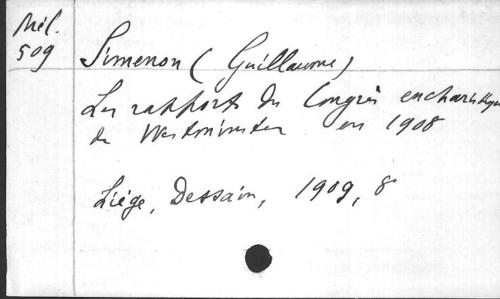 Mél.
509
Simenon (Guillaume)
Les rapports du Congrès eucharistique
de Westminster en 1908
Liège, Dessain, 1909, 8°